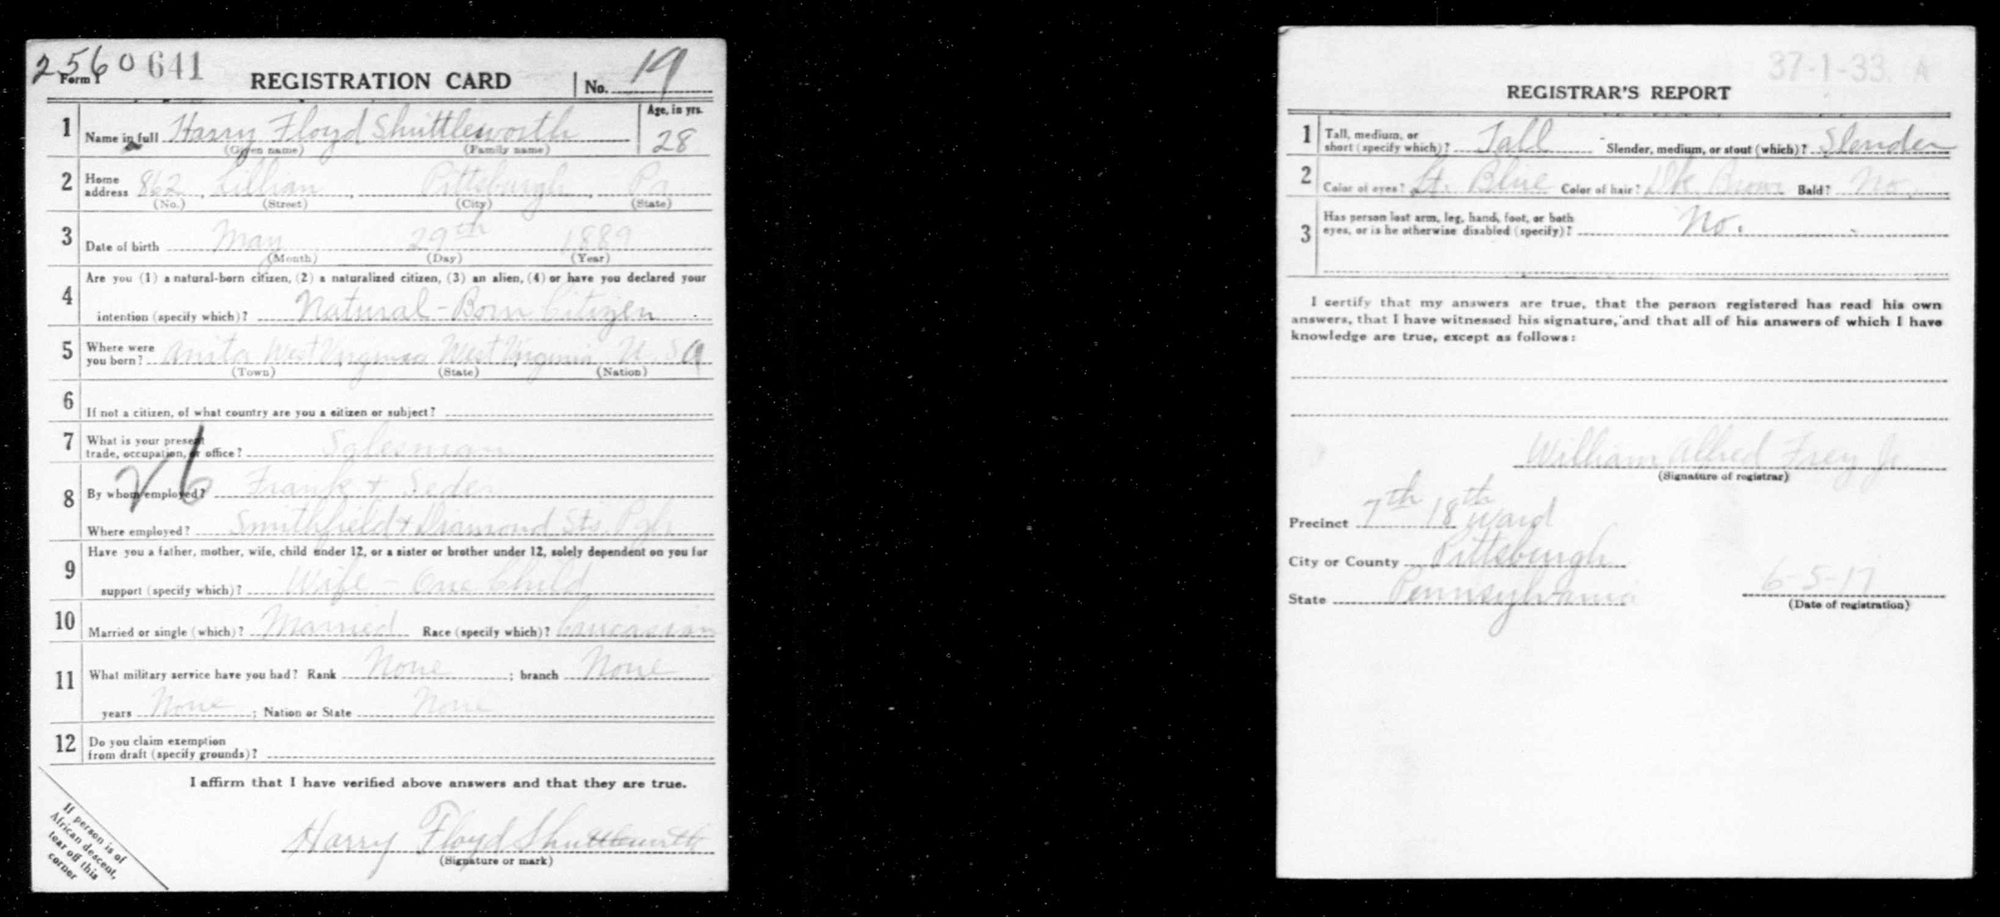 2560 641
Form 1 REGISTRATION CARD No. 19
1 Name in full Harry Floyd Shuttleworth Age, in yrs. 28
(Given name) (Family name)
2 Home address 862 Lillian Pittsburgh Pa
(No.) (Street) (City) (State)
3 Date of birth May 29th 1889
(Month) (Day) (Year)
4 Are you (1) a natural-born citizen, (2) a naturalized citizen, (3) an alien, (4) or have you declared your
intention (specify which)? Natural-Born Citizen
5 Where were you born? Anita West Virginia West Virginia U.S.A
(Town) (State) (Nation)
6 If not a citizen, of what country are you a citizen or subject?
7 What is your present trade, occupation, or office? Salesman
26
8 By whom employed? Frank & Seder
Where employed? Smithfield & Diamond Sts. Pgh
9 Have you a father, mother, wife, child under 12, or a sister or brother under 12, solely dependent on you for
support (specify which)? Wife - One Child
10 Married or single (which)? Married Race (specify which)? Caucasian
11 What military service have you had? Rank None ; branch None
years None ; Nation or State None
12 Do you claim exemption
from draft (specify grounds)?
I affirm that I have verified above answers and that they are true.
Harry Floyd Shuttleworth
(Signature or mark)
If person is of
African descent,
tear off this
corner
37-1-33. A
REGISTRAR'S REPORT
1 Tall, medium, or short (specify which)? Tall Slender, medium, or stout (which)? Slender
2 Color of eyes? Lt. Blue Color of hair? Dk. Brown Bald? No.
3 Has person lost arm, leg, hand, foot, or both
eyes, or is he otherwise disabled (specify)? No.
I certify that my answers are true, that the person registered has read his own
answers, that I have witnessed his signature, and that all of his answers of which I have
knowledge are true, except as follows:
William Alfred Frey Jr.
(Signature of registrar)
Precinct 7th 18th Ward
City or County Pittsburgh
State Pennsylvania 6-5-17
(Date of registration)